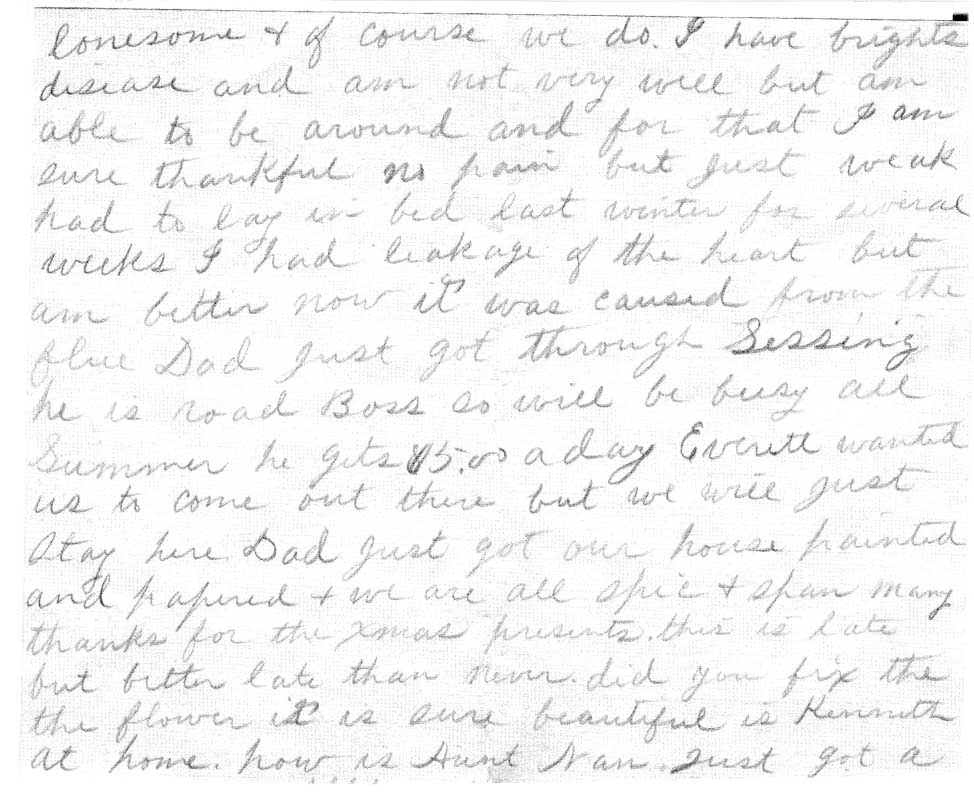 lonesome & of course we do. I have brights
disease and am not very well but am
able to be around and for that I am
sure thankful no pain but just weak
had to lay in bed last winter for several
weeks I had leakage of the heart but
am better now it was caused from the
flue Dad just got through Sessing
he is road Boss so will be busy all
Summer he gets 5.00 a day Everett wanted
us to come out there but we will just
Stay here Dad just got our house painted
and papered + we are all spic + span many
thanks for the Xmas presents. this is late
but better late than never. did you fix the
the flower it is sure beautiful is Kenneth
at home. how is Aunt Nan. Just got a